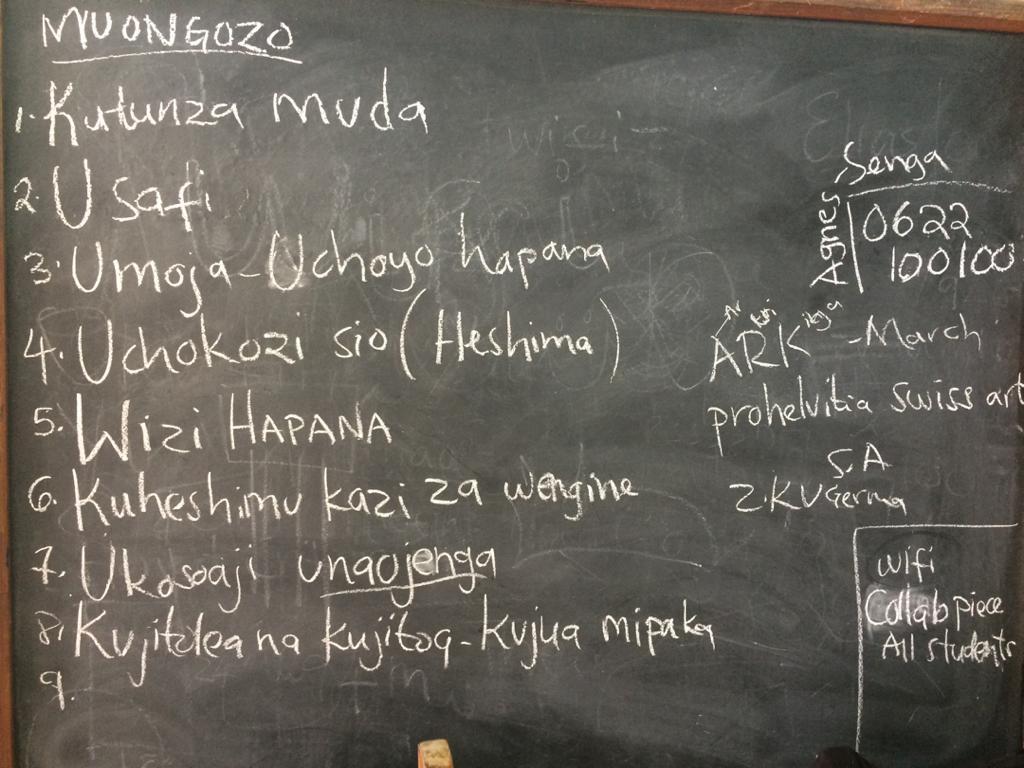 MUONGOZO
1. Kutunza muda
2. Usafi
3. Umoja - Uchoyo hapana
4. Uchokozi sio (Heshima)
5. Wizi HAPANA
6. Kuheshimu kazi za wengine
7. Ukosoaji unaojenga
8. Kujitolea na kujitoa - kujua mipaka
9.
Senga
Agnes
0622
100100
ARK - March
prohelvitia swiss art
S.A
Z.KU Germa
wifi
Collab piece
All students